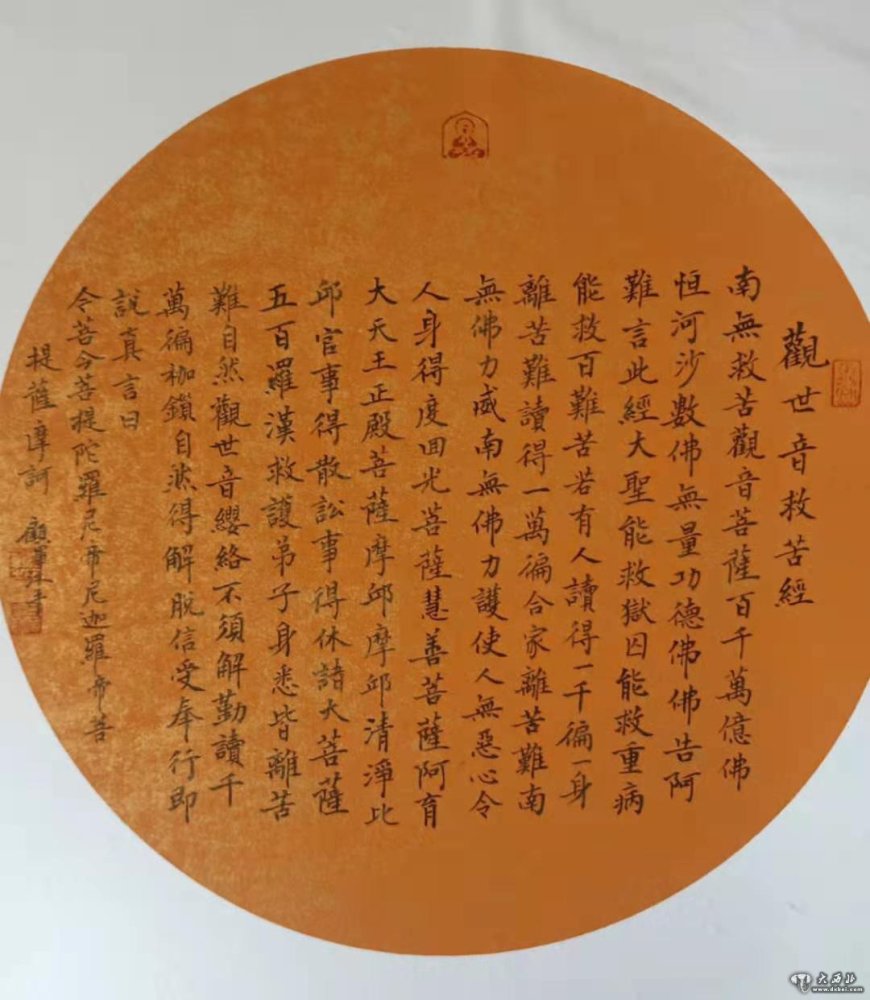 觀世音救苦經
南無救苦觀音菩薩百千萬億佛
恒河沙數佛無量功德佛佛告阿
難言此經大聖能救獄囚能救重病
能救百難苦若有人讀得一千徧一身
離苦難讀得一萬徧合家離苦難南
無佛力威南無佛力護使人無惡心令
人身得度回光菩薩慧善菩薩阿育
大天王正殿菩薩摩邱摩邱清淨比
邱官事得散訟事得休諸大菩薩
五百羅漢救護弟子身悉皆離苦
難自然觀世音纓絡不須解勤讀千
萬徧枷鎖自然得解脫信受奉行即
說真言曰
令菩今菩提陀羅尼帝尼迦羅帝菩
提薩摩訶
大西北
www.dxbei.com